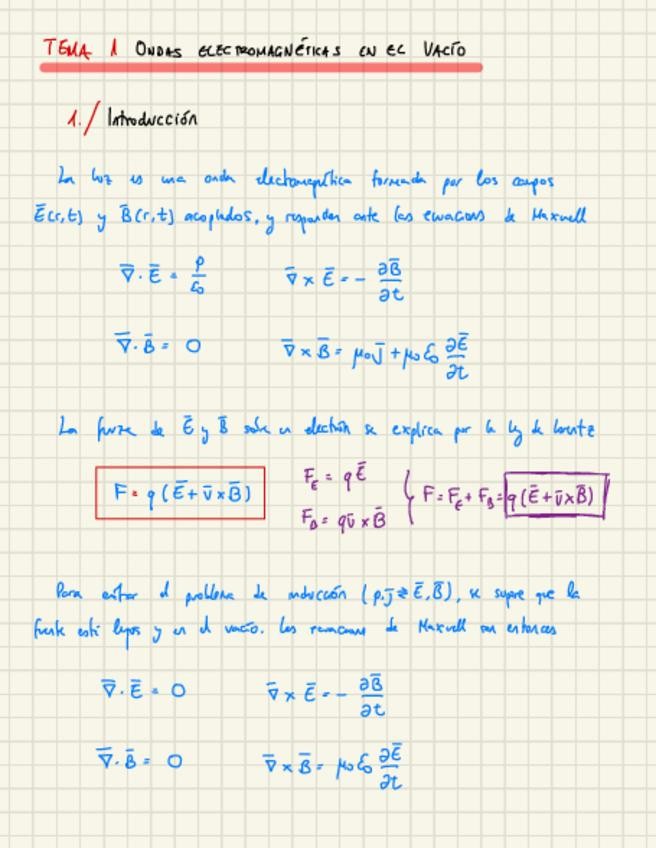 TEMA 1 ONDAS ELECTROMAGNÉTICAS EN EL VACÍO
1./ Introducción
La luz es una onda electromagnética formada por los campos
Ē(r,t) y B̄(r,t) acoplados, y responden ante las ecuaciones de Maxwell
∇̄·Ē = ρ/ε₀    ∇̄×Ē = - ∂B̄/∂t
∇̄·B̄ = 0    ∇̄×B̄ = μ₀J̄ + μ₀ε₀ ∂Ē/∂t
La fuerza de Ē y B̄ sobre un electrón se explica por la ley de Lorentz
F = q(Ē+v̄×B̄)    F_E = qĒ    F_B = qv̄×B̄    F = F̄_E + F_B = q(Ē+v̄×B̄)
Para evitar el problema de inducción (ρ,J̄ ⇄ Ē,B̄), se supone que la
fuente está lejos y en el vacío. Las ecuaciones de Maxwell son entonces
∇̄·Ē = 0    ∇̄×Ē = - ∂B̄/∂t
∇̄·B̄ = 0    ∇̄×B̄ = μ₀ε₀ ∂Ē/∂t